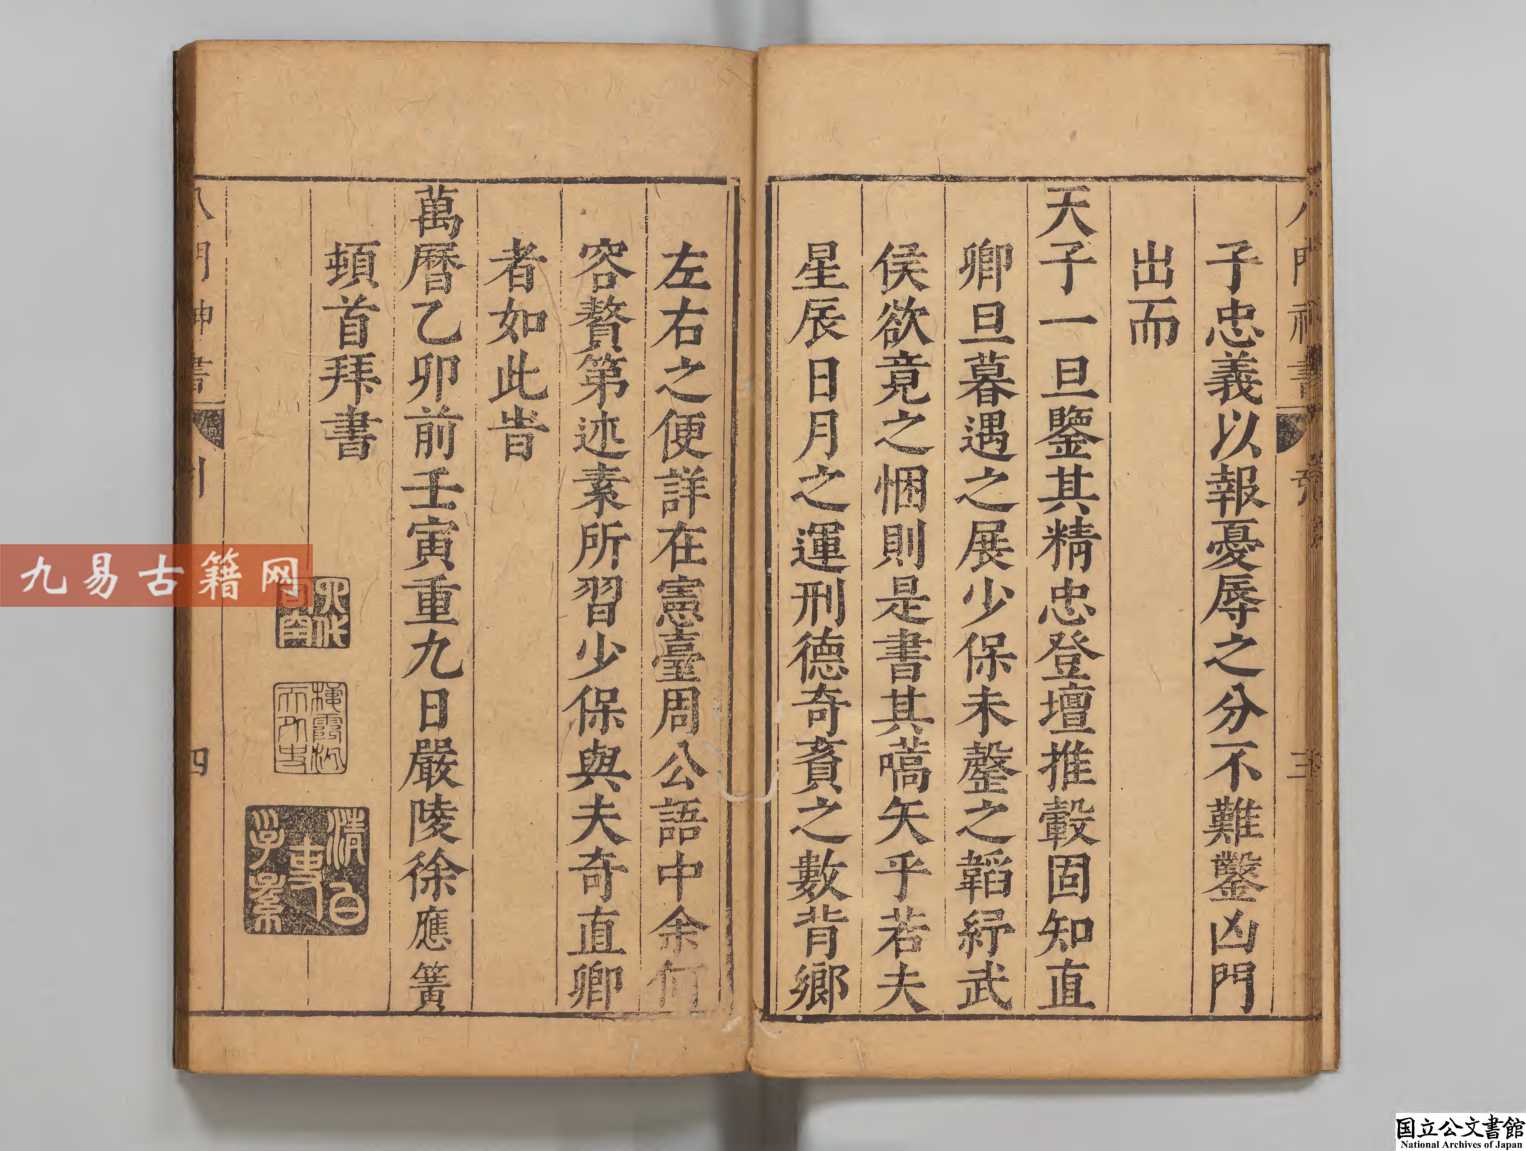 子忠義以報憂辱之分不難鑿凶門
出而
天子一旦鑒其精忠登壇推轂固知直
卿旦暮遇之展少保未罄之韜紓武
侯欲竟之悃則是書其蒿矢乎若夫
星辰日月之運刑德奇賌之數背鄉
左右之便詳在憲臺周公語中余何
容贅第述素所習少保與夫奇直卿
者如此旹
萬曆乙卯前壬寅重九日嚴陵徐應簧
頓首拜書
八門神書
四
清白
九易古籍网
国立公文書館
National Archives of Japan